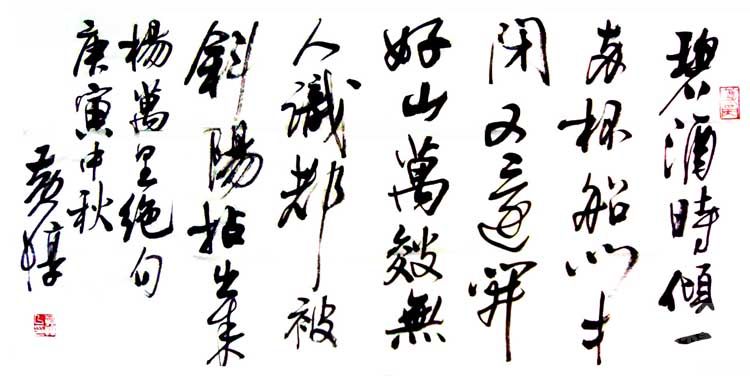 碧酒時傾一
兩杯船門才
閉又還開
好山萬皺無
人識都被
斜陽拈出來
楊萬里絕句
庚寅中秋
黃惇